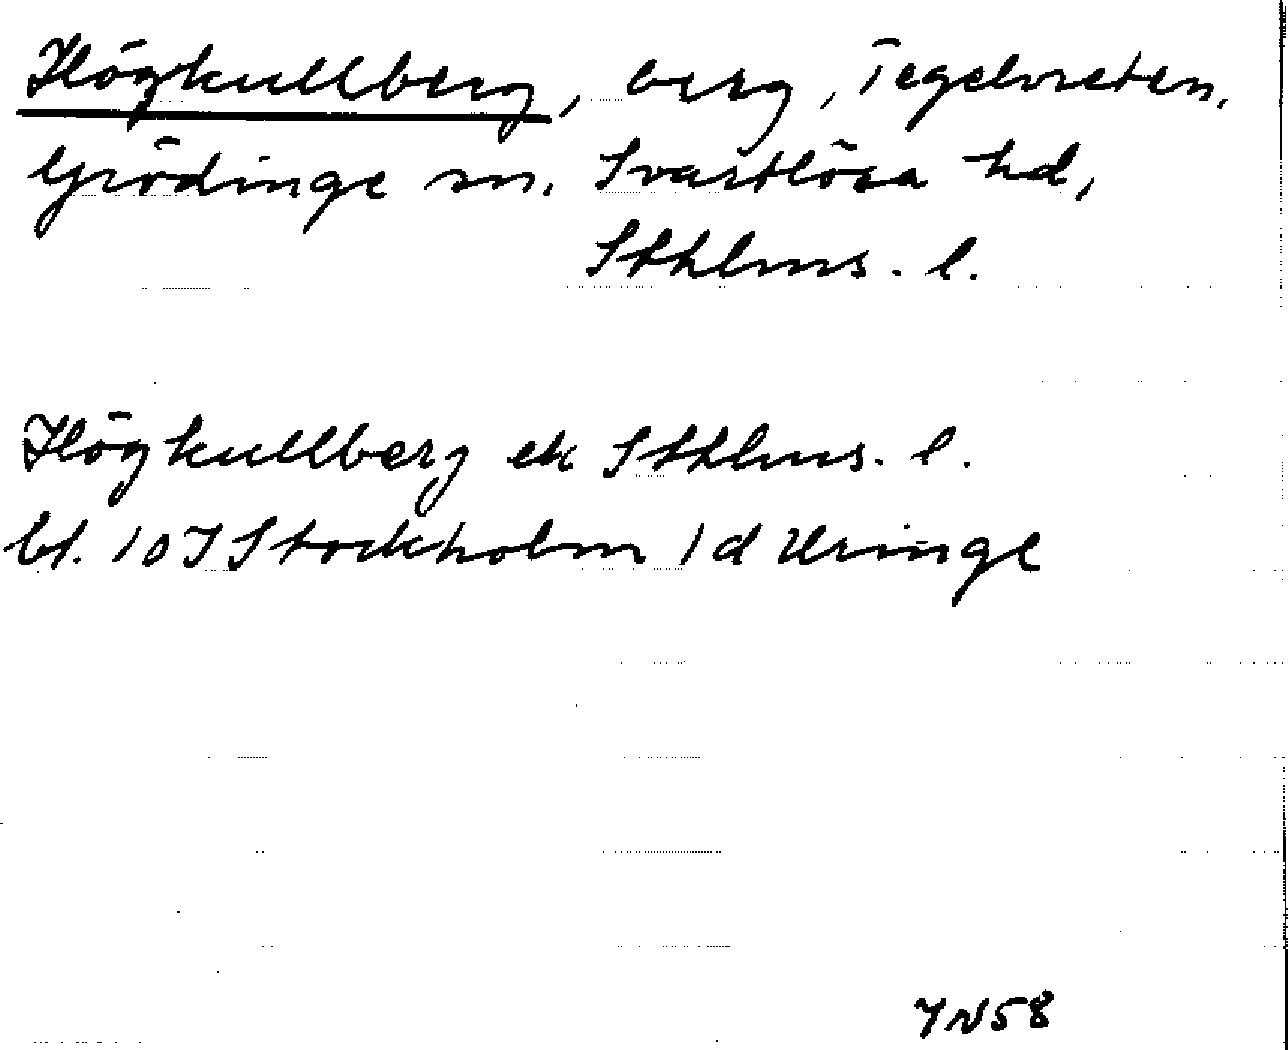 Högkullberg, berg, Tegelvreten,
Grödinge sn. Svartlösa hd,
Sthlms. l.
Högkullberg ek Sthlms. l.
bl. 10 I Stockholm 1 d Uringe
IN58